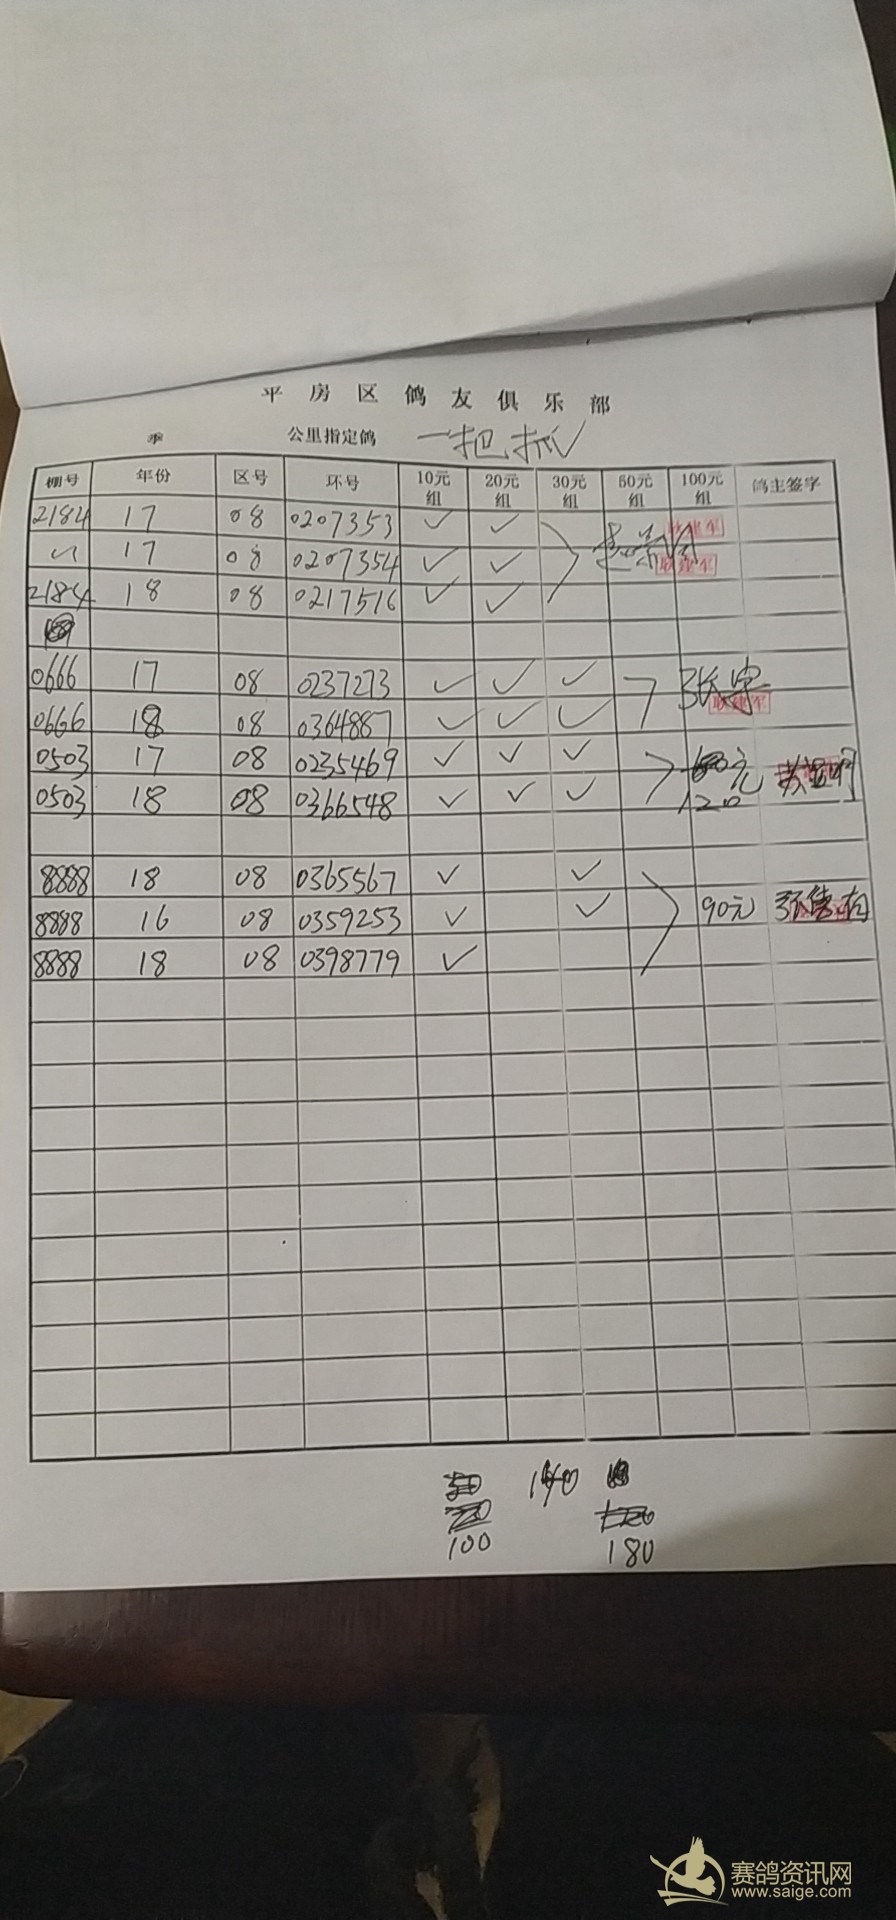 平房区鸽友俱乐部
季 公里指定鸽 一把抓
棚号 年份 区号 环号 10元组 20元组 30元组 50元组 100元组 鸽主签字
2184 17 08 0207353 ✓ ✓
〃 17 08 0207354 ✓ ✓
2184 18 08 0217516 ✓ ✓
0666 17 08 0237273 ✓ ✓ ✓
0666 18 08 0364887 ✓ ✓ ✓
0503 17 08 0235469 ✓ ✓ ✓ 元
0503 18 08 0366548 ✓ ✓ ✓ 120
8888 18 08 0365567 ✓ ✓
8888 16 08 0359253 ✓ ✓ 90元
8888 18 08 0398779 ✓
140
100 180
赛鸽资讯网
www.saige.com